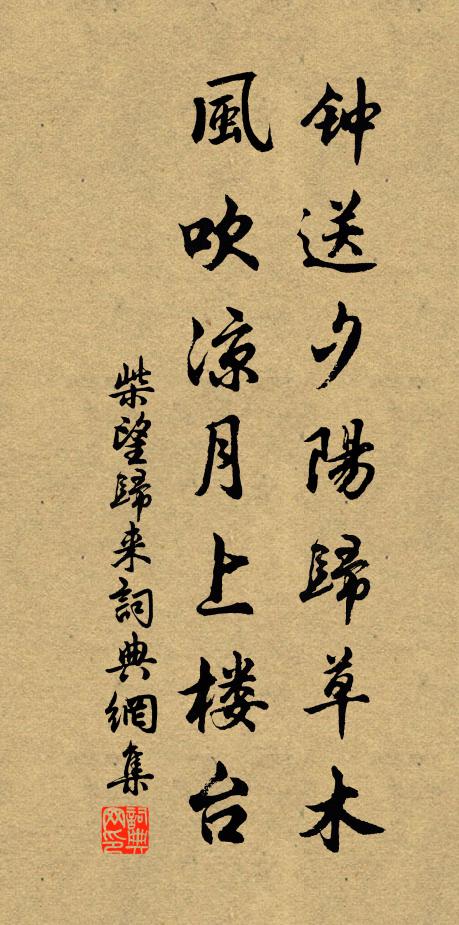 钟送夕陽歸草木
風吹涼月上楼台
柴望歸来詞典網集
詞典
网印